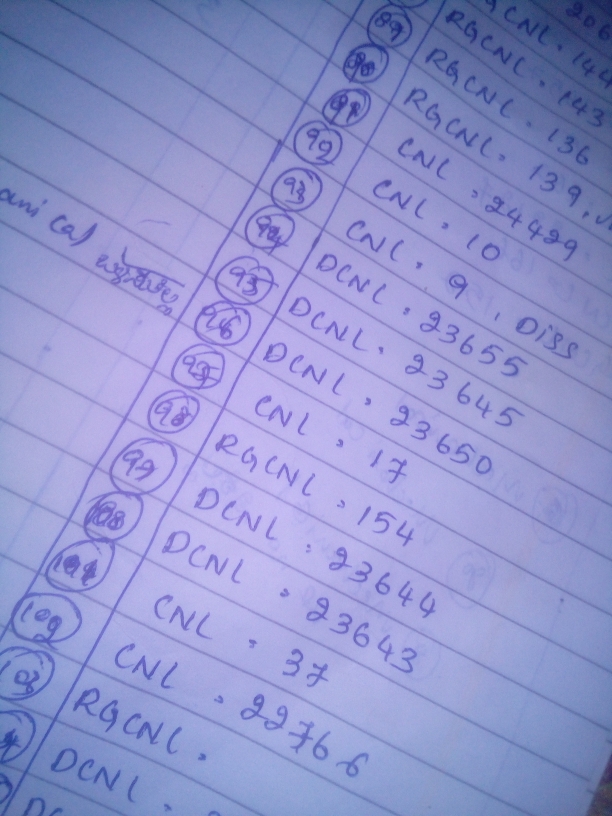 206
RGCNL. 144
89 RGCNL. 143
90 RGCNL. 136
91 RGCNL. 139,
92 CNL. 24429
93 CNL. 10
94 CNL. 9, DISS
95 DCNL. 23655
96 DCNL. 23645
97 DCNL. 23650
98 CNL. 17
99 RGCNL. 154
100 DCNL. 23644
101 DCNL. 23643
102 CNL. 37
103 CNL. 22766
RGCNL.
DCNL.